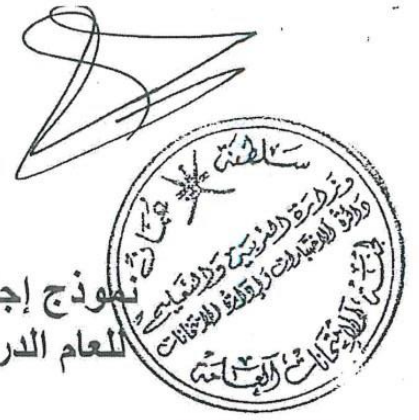 سلطنة عمان
وزارة التربية والتعليم
دائرة الاختبارات وإدارة الامتحانات
لجنة الامتحانات العامة
نموذج إجـ
للعام الدر